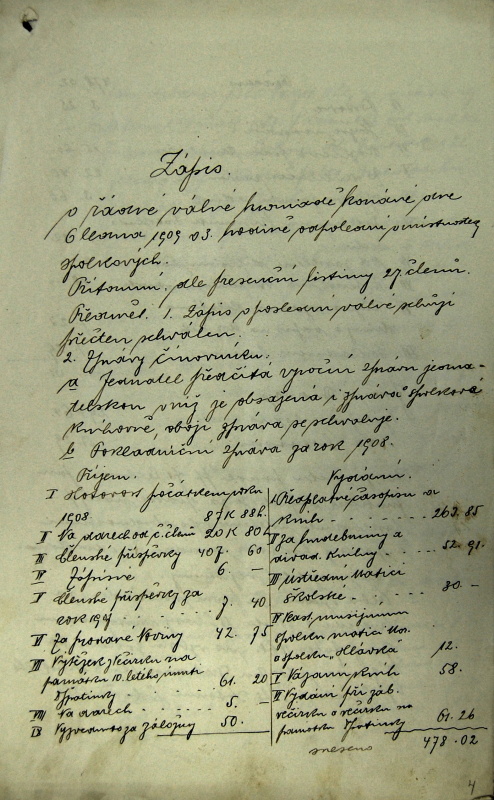 Zápis.
o řádné válné hromadě konané dne
6 ledna 1909 o 3. hodině odpolední v místnostech
spolkových.
Přítomni. dle presenční listiny 27 členů.
1. Zápis o poslední válné schůzi
přečten schválen.
2. Zprávy činovníků.
a Jednatel předčítá výroční zprávu jedna-
telskou v níž je obsažená i zpráva o spolkové
knihovně, obojí zpráva se schvaluje.
b Pokladniční zpráva za rok 1908.
Příjem.
I Hotovost počátkem roku
1908. 87 K 88 h.
II Na darech od č. členů 20 K 80 h
III Členské příspěvky 407. 60
IV Zápisné 6. –
V Členské příspěvky za
rok 7. 40
VI Za prodané Noviny 42. 75
VII Výtěžek z Večírku na
památku 10. letého úmrtí
61. 20
VIII Na darech 5. –
IX za zálohy 50.
Vydání.
I Předplatné časopisů a
knih 263.85
II Za hudebniny a
divad. knihy 52.91.
III Ústřední Matici
Školské 30 –
IV
spolku
o spolku „Hlávka 12.
V Vázání knih 58.
VI Vydání při záb.
večírku a večírku na
památku 61.26
sneseno 478.02
4